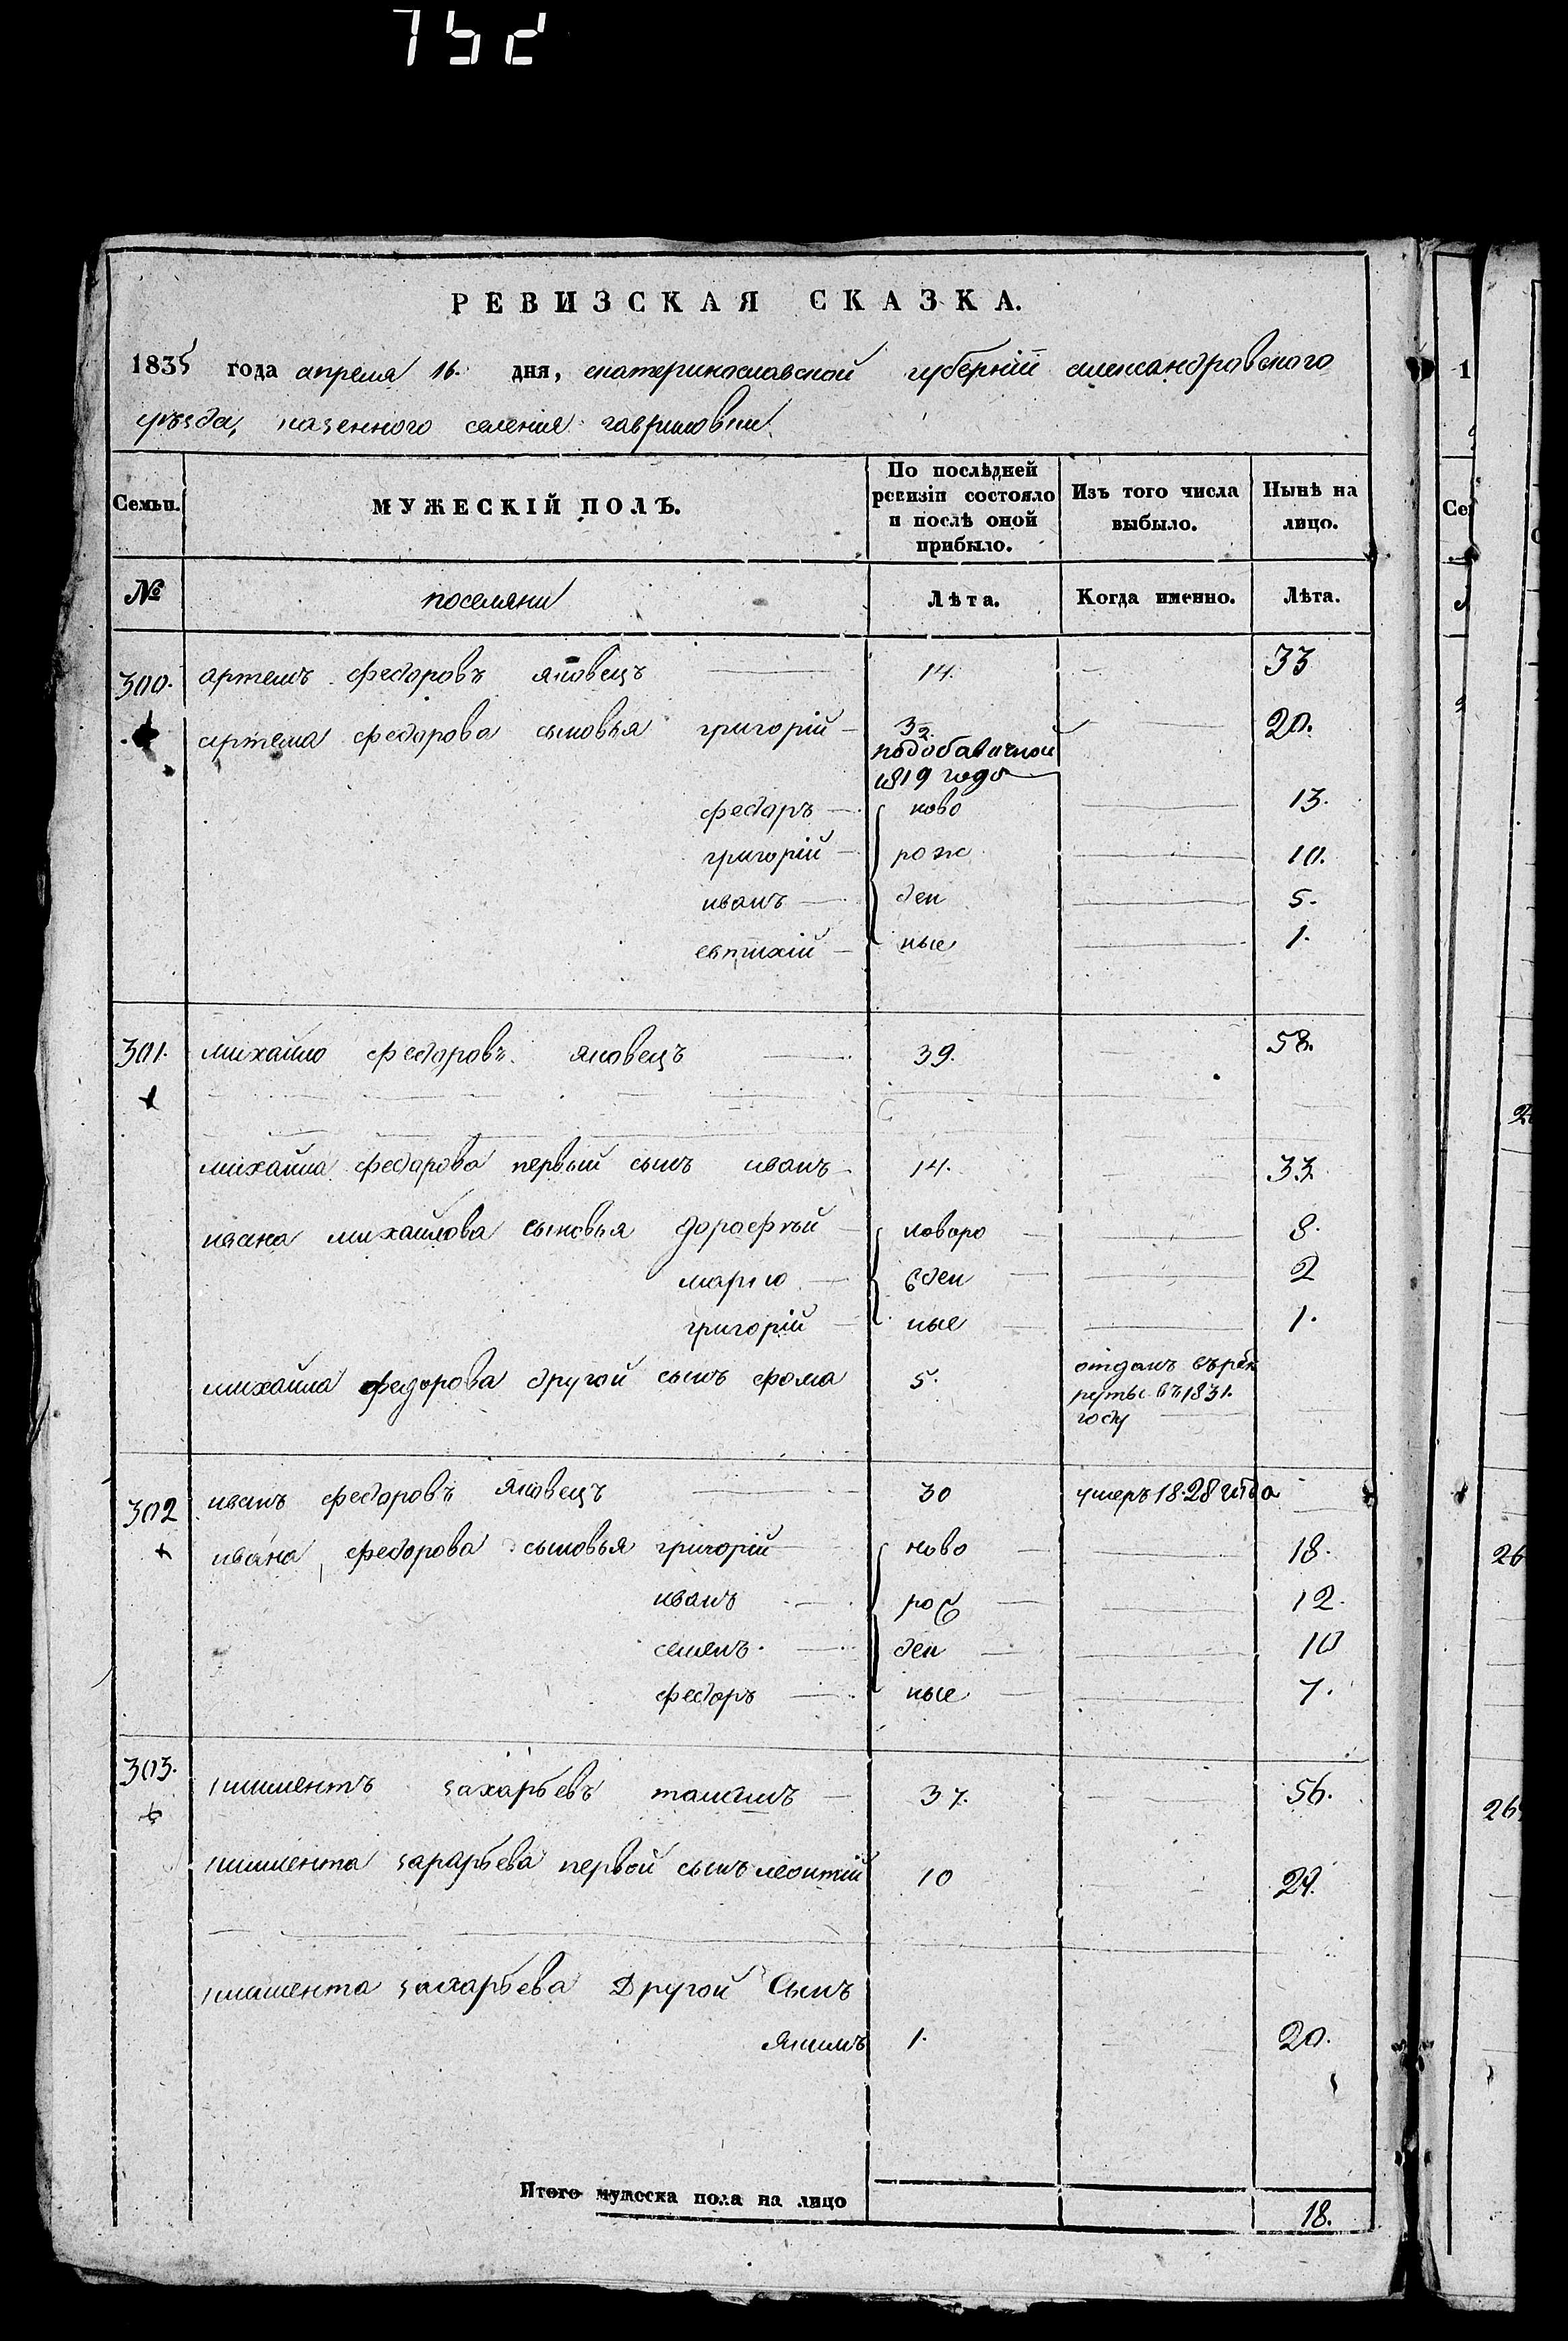 752
РЕВИЗСКАЯ СКАЗКА.
1835 года апреля 16. дня, екатеринославской губернии александровского
уѣзда, казенного селения гавриловки
Семьи. МУЖЕСКІЙ ПОЛЪ. По послѣдней ревизіи состояло и послѣ оной прибыло. Изъ того числа выбыло. Нынѣ на лицо.
№ поселяни Лѣта. Когда именно. Лѣта.
300. артемъ федоровъ яковецъ 14. 33
артема федорова сыновья григорій 3 20.
подобавочной
1819 года
федоръ ново 13.
григорій рож 10.
иванъ ден 5.
евтихій ные 1.
301. михайло федоровъ яковецъ 39. 58.
михайла федорова первый сынъ иванъ 14. 33.
ивана михайлова сыновья дорофѣй новоро 8.
марко жден 2
григорій ные 1.
михайла федорова другой сынъ фома 5. отданъ въ рек
руты въ 1831.
году
302 иванъ федоровъ яковецъ 30 умеръ 1828 года
ивана федорова сыновья григорій ново 18.
иванъ рож 12.
семенъ ден 10
федоръ ные 7.
303. климентъ захарьевъ 37. 56.
климента захарьева первой сынъ леонтій 10 29.
климента захарьева Другой Сынъ
якимъ 1. 20.
Итого мужеска пола на лицо 18.